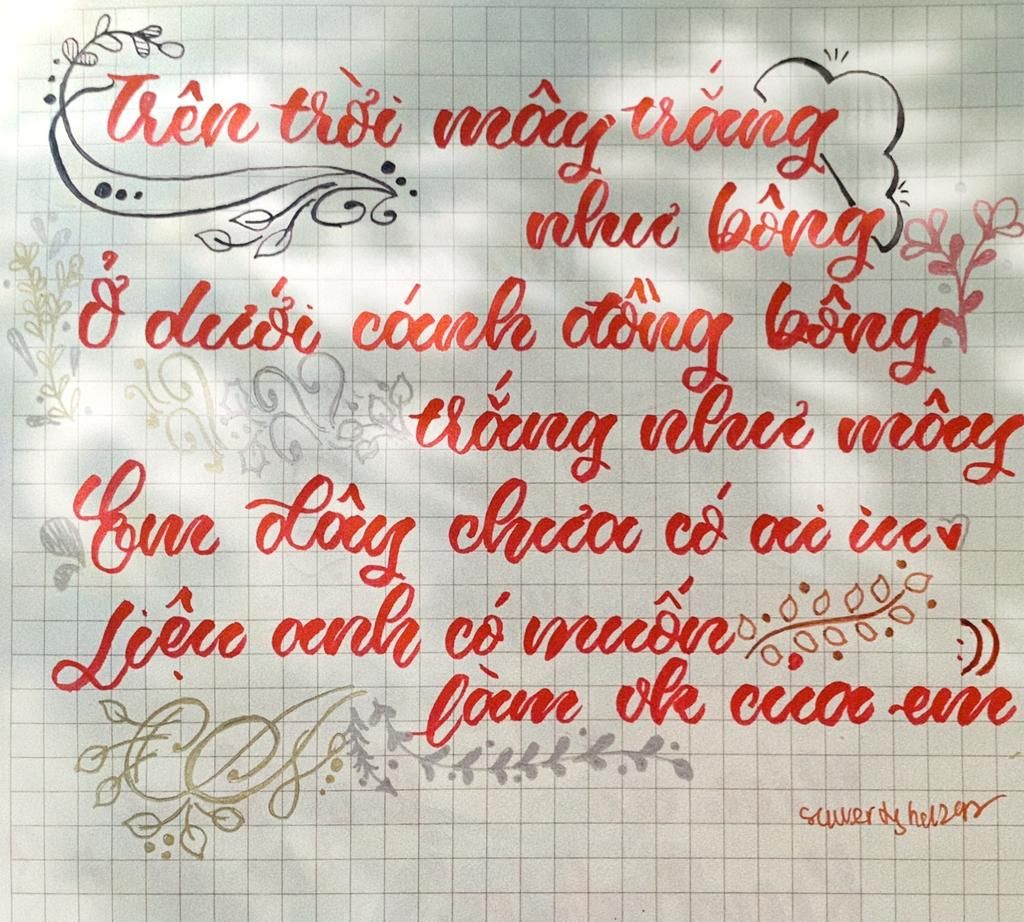 Trên trời mây trắng
như bông
Ở dưới cánh đồng bông
trắng như mây
Em đây chưa có ai iu
Liệu anh có muốn :))
làm vk cua em